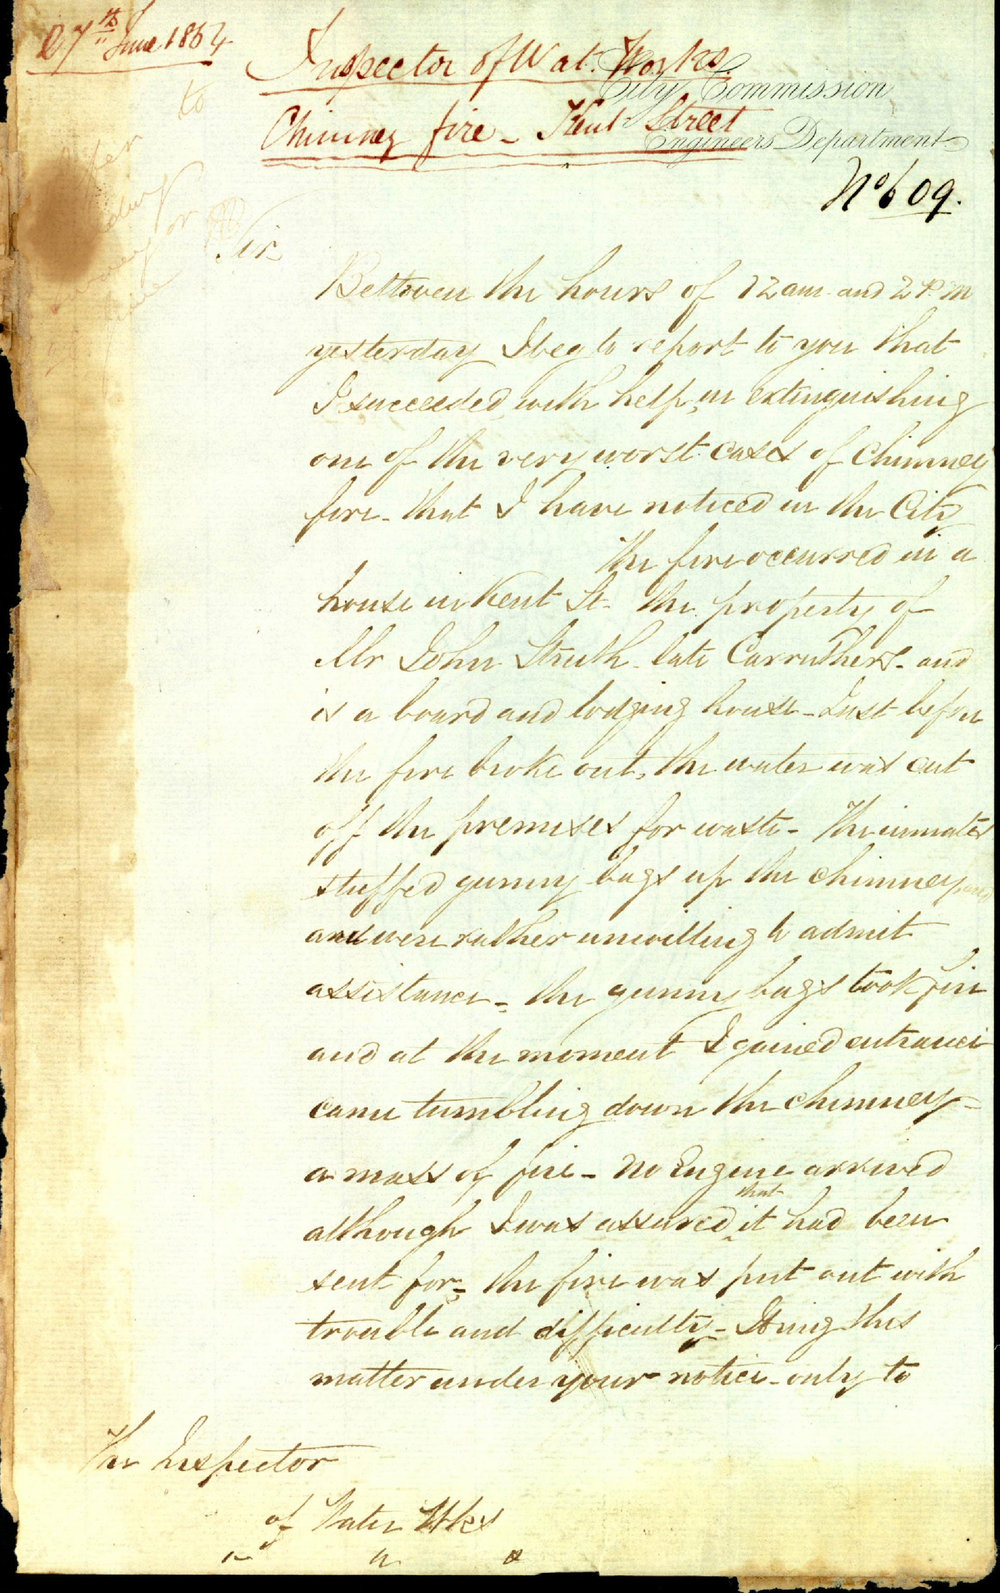 27th June 1864
Inspector of Wat. Works
City Commission
Chimney fire - Kent Street
Engineers Department
No 609.
to
Sir
Bettween the hours of 12 am and 2 P.m
yesterday I beg to report to you that
I succeeded, with help, in extinguishing
one of the very worst cases of Chimney
fire - that I have noticed in the City
The fire occurred in a
house in Kent St - the property of
Mr John Struth - late Carruthers - and
is a board and lodging house - Just before
the fire broke out, the water was cut
off the premises for waste - The inmates
stuffed gunny bags up the chimney
and were rather unwilling to admit
assistance - the gunny bags took fire
and at the moment I gained entrance
came tumbling down the chimney -
a mass of fire - No Engine arrived
although I was assured that it had been
sent for - the fire was put out with
trouble and difficulty - I bring this
matter under your notice - only to
The Inspector
of Water Wks